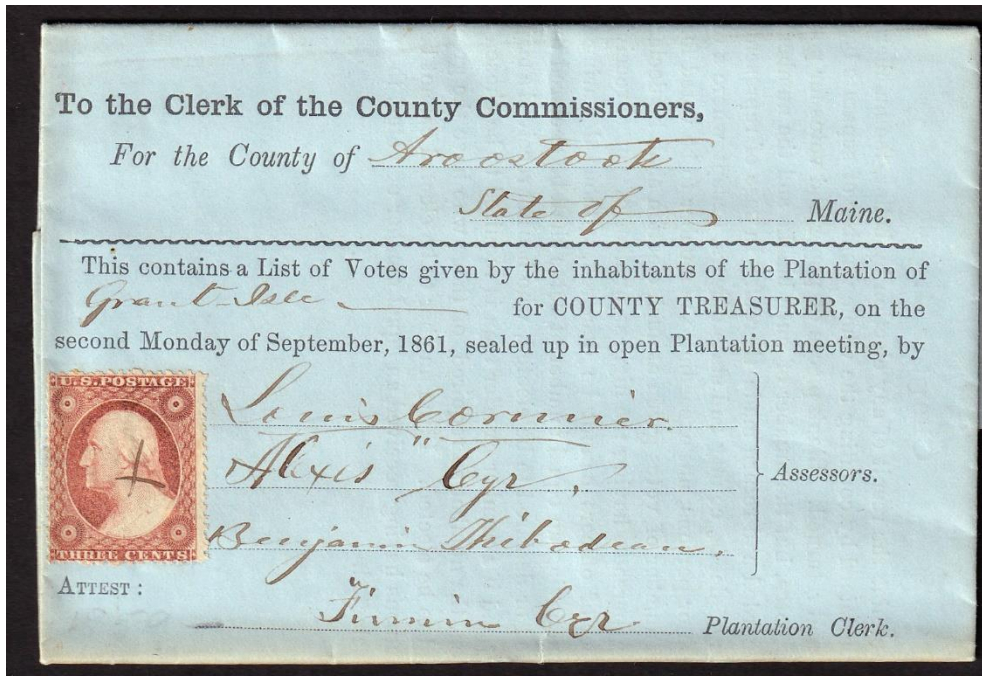 To the Clerk of the County Commissioners,
For the County of Aroostook
State of Maine.
This contains a List of Votes given by the inhabitants of the Plantation of
Grant Isle for COUNTY TREASURER, on the
second Monday of September, 1861, sealed up in open Plantation meeting, by
U.S. POSTAGE
THREE CENTS
Louis Cormier.
Alexis Cyr,
Assessors.
Benjamin Thibodeau,
ATTEST:
Firmin Cyr Plantation Clerk.